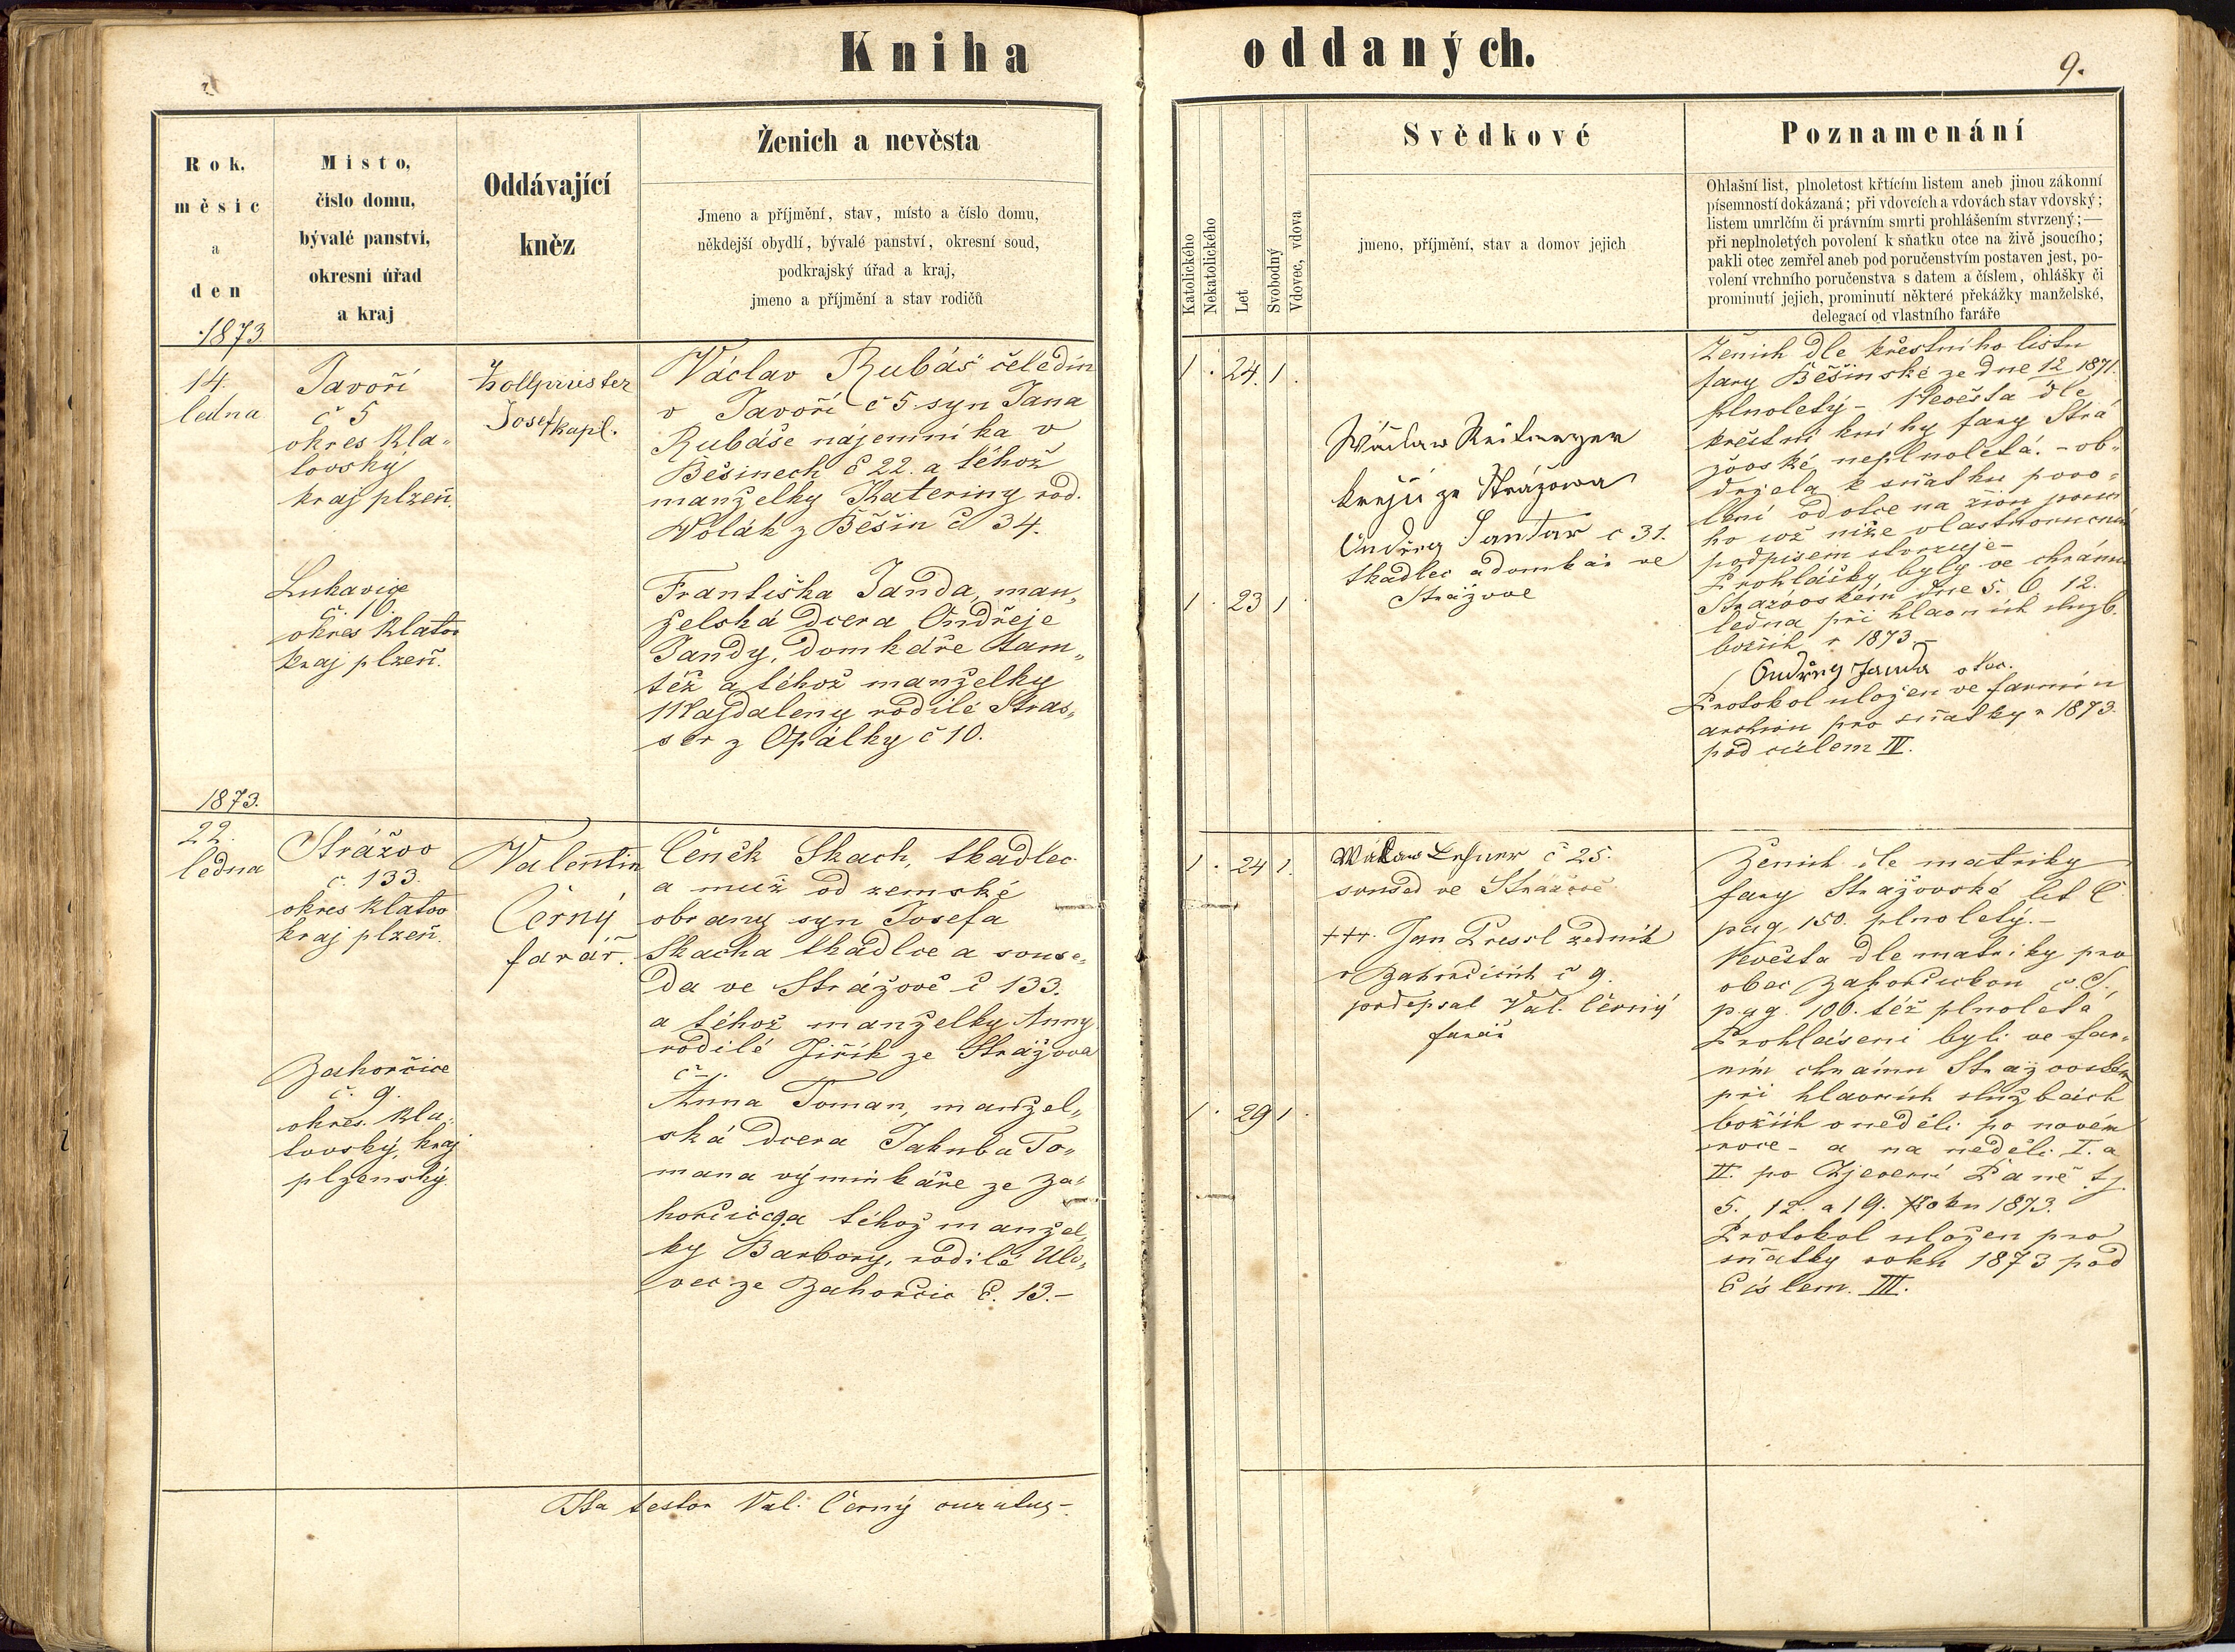 Kniha oddaných.
9.
Rok,
měsíc
a
den
Místo,
číslo domu,
bývalé panství,
okresní úřad
a kraj
Oddávající
kněz
Ženich a nevěsta
Jmeno a příjmění, stav, místo a číslo domu,
někdejší obydlí, bývalé panství, okresní soud,
podkrajský úřad a kraj,
jmeno a příjmění a stav rodičů
Katolického
Nekatolického
Let
Svobodný
Vdovec, vdova
Svědkové
jmeno, příjmění, stav a domov jejich
Poznamenání
Ohlašní list, plnoletost křtícím listem aneb jinou zákonní
písemností dokázaná; při vdovcích a vdovách stav vdovský;
listem umrlčím či právním smrti prohlášením stvrzený;—
při neplnoletých povolení k sňatku otce na živě jsoucího;
pakli otec zemřel aneb pod poručenstvím postaven jest, po-
volení vrchního poručenstva s datem a číslem, ohlášky či
prominutí jejich, prominutí některé překážky manželské,
delegací od vlastního faráře
1873
14.
ledna
Javoří
č 5
okres Kla„
tovský
kraj plzeň.
Lukavice
č. 10.
okres Klatov
kraj plzeň.
Josef kapl.
Václav Rubáš čeledín
v Javoří č 5 syn Jana
Rubáše nájemníka v
Běšinech č 22. a téhož
manželky Kateriny rod.
Wolák z Běšin č 34.
Františka Janda, man„
želská dcera Ondřeje
Jandy, domkáře tam„
též a téhož manželky
Majdaleny rodilé Stras„
ser z Opálky č 10.
1 . 24. 1 .
1 . 23 1 .
Wáclaw
krejčí ze Strážowa
Ondřej Jantar c 31.
tkadlec a domkář ve
Strážově
Ženich dle křestního listu
fary Běšinské ze dne 12 1871.
plnoletý – Nevěsta dle
křestní knihy fary Strá
žovské neplnoletá. – ob„
držela k sňatku povo„
lení od otce na živu jsoucí
ho což níže vlastnoruční
podpisem stvrzuje –
Prohlášky byly ve chrámu
Strážovském dne 5. 6 12.
ledna při hlavních služb.
božích r 1873 –
Ondřej Janda otec.
Protokol uložen ve farním
archivu pro sňatky r 1873.
pod číslem IV.
1873.
22.
ledna
Strážov
č. 133.
okres Klatov
kraj plzeň.
Zahorčice
č. 9.
okres. Kla„
tovský, kraj
plzenský.
Valentin
Černý
farář.
Čeněk Skach, tkadlec
a muž od zemské
obrany syn Josefa
Skacha tkadlce a souse„
da ve Strážově č 133.
a téhož manželky Anny
rodilé Jiřík ze Strážova
č –.
Anna Toman, manžel„
ská dcera Jakuba To„
mana výminkáře ze Za„
horčic č 9. a téhož manžel„
ky Barbory, rodilé Ulo„
vec ze Zahorčic č. 13.–
1 . 24 1.
1 . 29 1 .
Wáclaw Lesner č 25.
soused ve Strážově
+++. Jan Pressl zedník
v Zahorčicích č 9.
podepsal Val. Černý
farář
Ženich dle matriky
fary Strážovské lit C
pag. 150. plnoletý.–
Nevěsta dle matriky pro
obec Zahorčickou
pag. 106. též plnoletá
Prohlášeni byli ve far„
ním chrámu Strážovském
při hlavních službách
božích o neděli po novém
roce – a na neděli I. a
II. po Zjevení Páně tj.
5. 12. a 19. roku 1873.
Protokol uložen pro
sňatky roku 1873 pod
číslem. III.
Ita testor Val. Černý curatus –